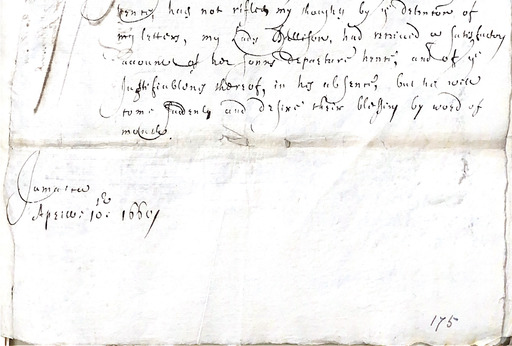 hence, has not rifled my thoughts by yᵉ detention of
my letters, my Lady Bellison, had received a satisfactory
account of her sonns departure hence, and of yᵉ
Justifiablenes thereof, in his absence, but he will
come suddenly and desire their blessing by word of
mouth.
Jamaica
Aprill: 10ᵗʰ: 1660/
175